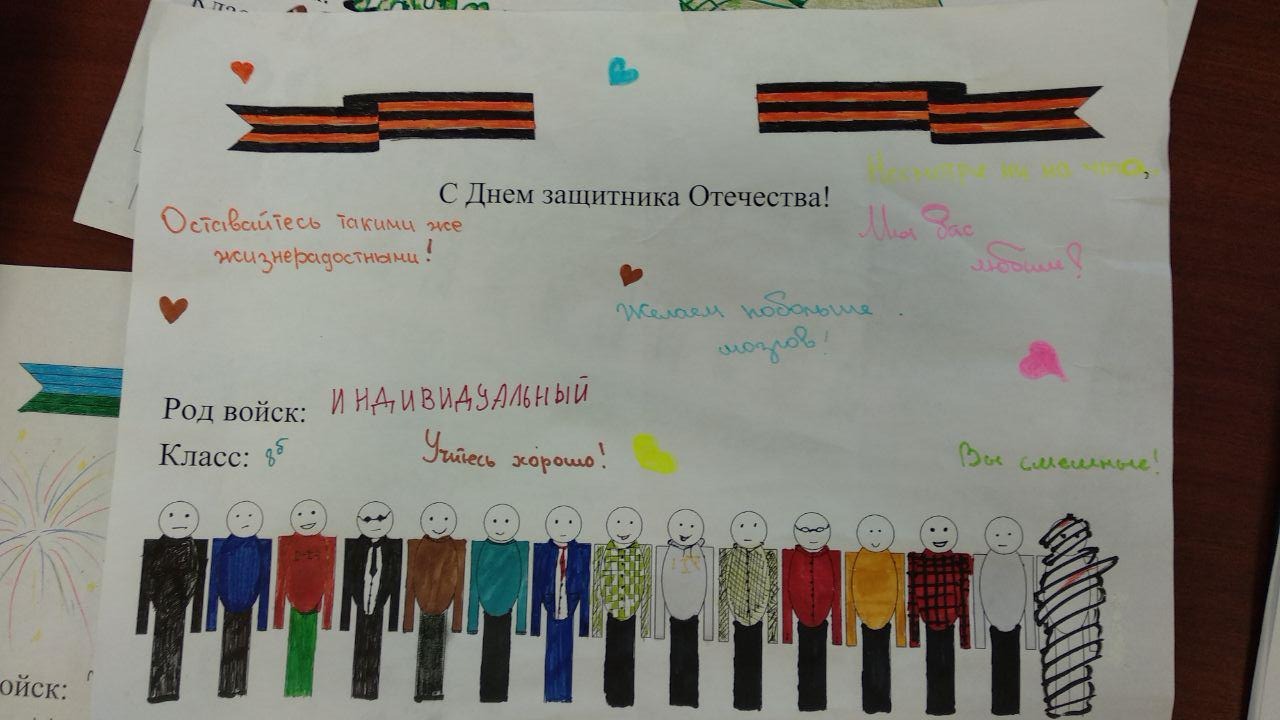 Клас
С Днем защитника Отечества!
Несмотря ни на что,
Оставайтесь такими же
жизнерадостными!
Мы Вас
любим!
Желаем побольше
мозгов!
Род войск: ИНДИВИДУАЛЬНЫЙ
Класс: 8б
Учитесь хорошо!
Вы смешные!
ойск: